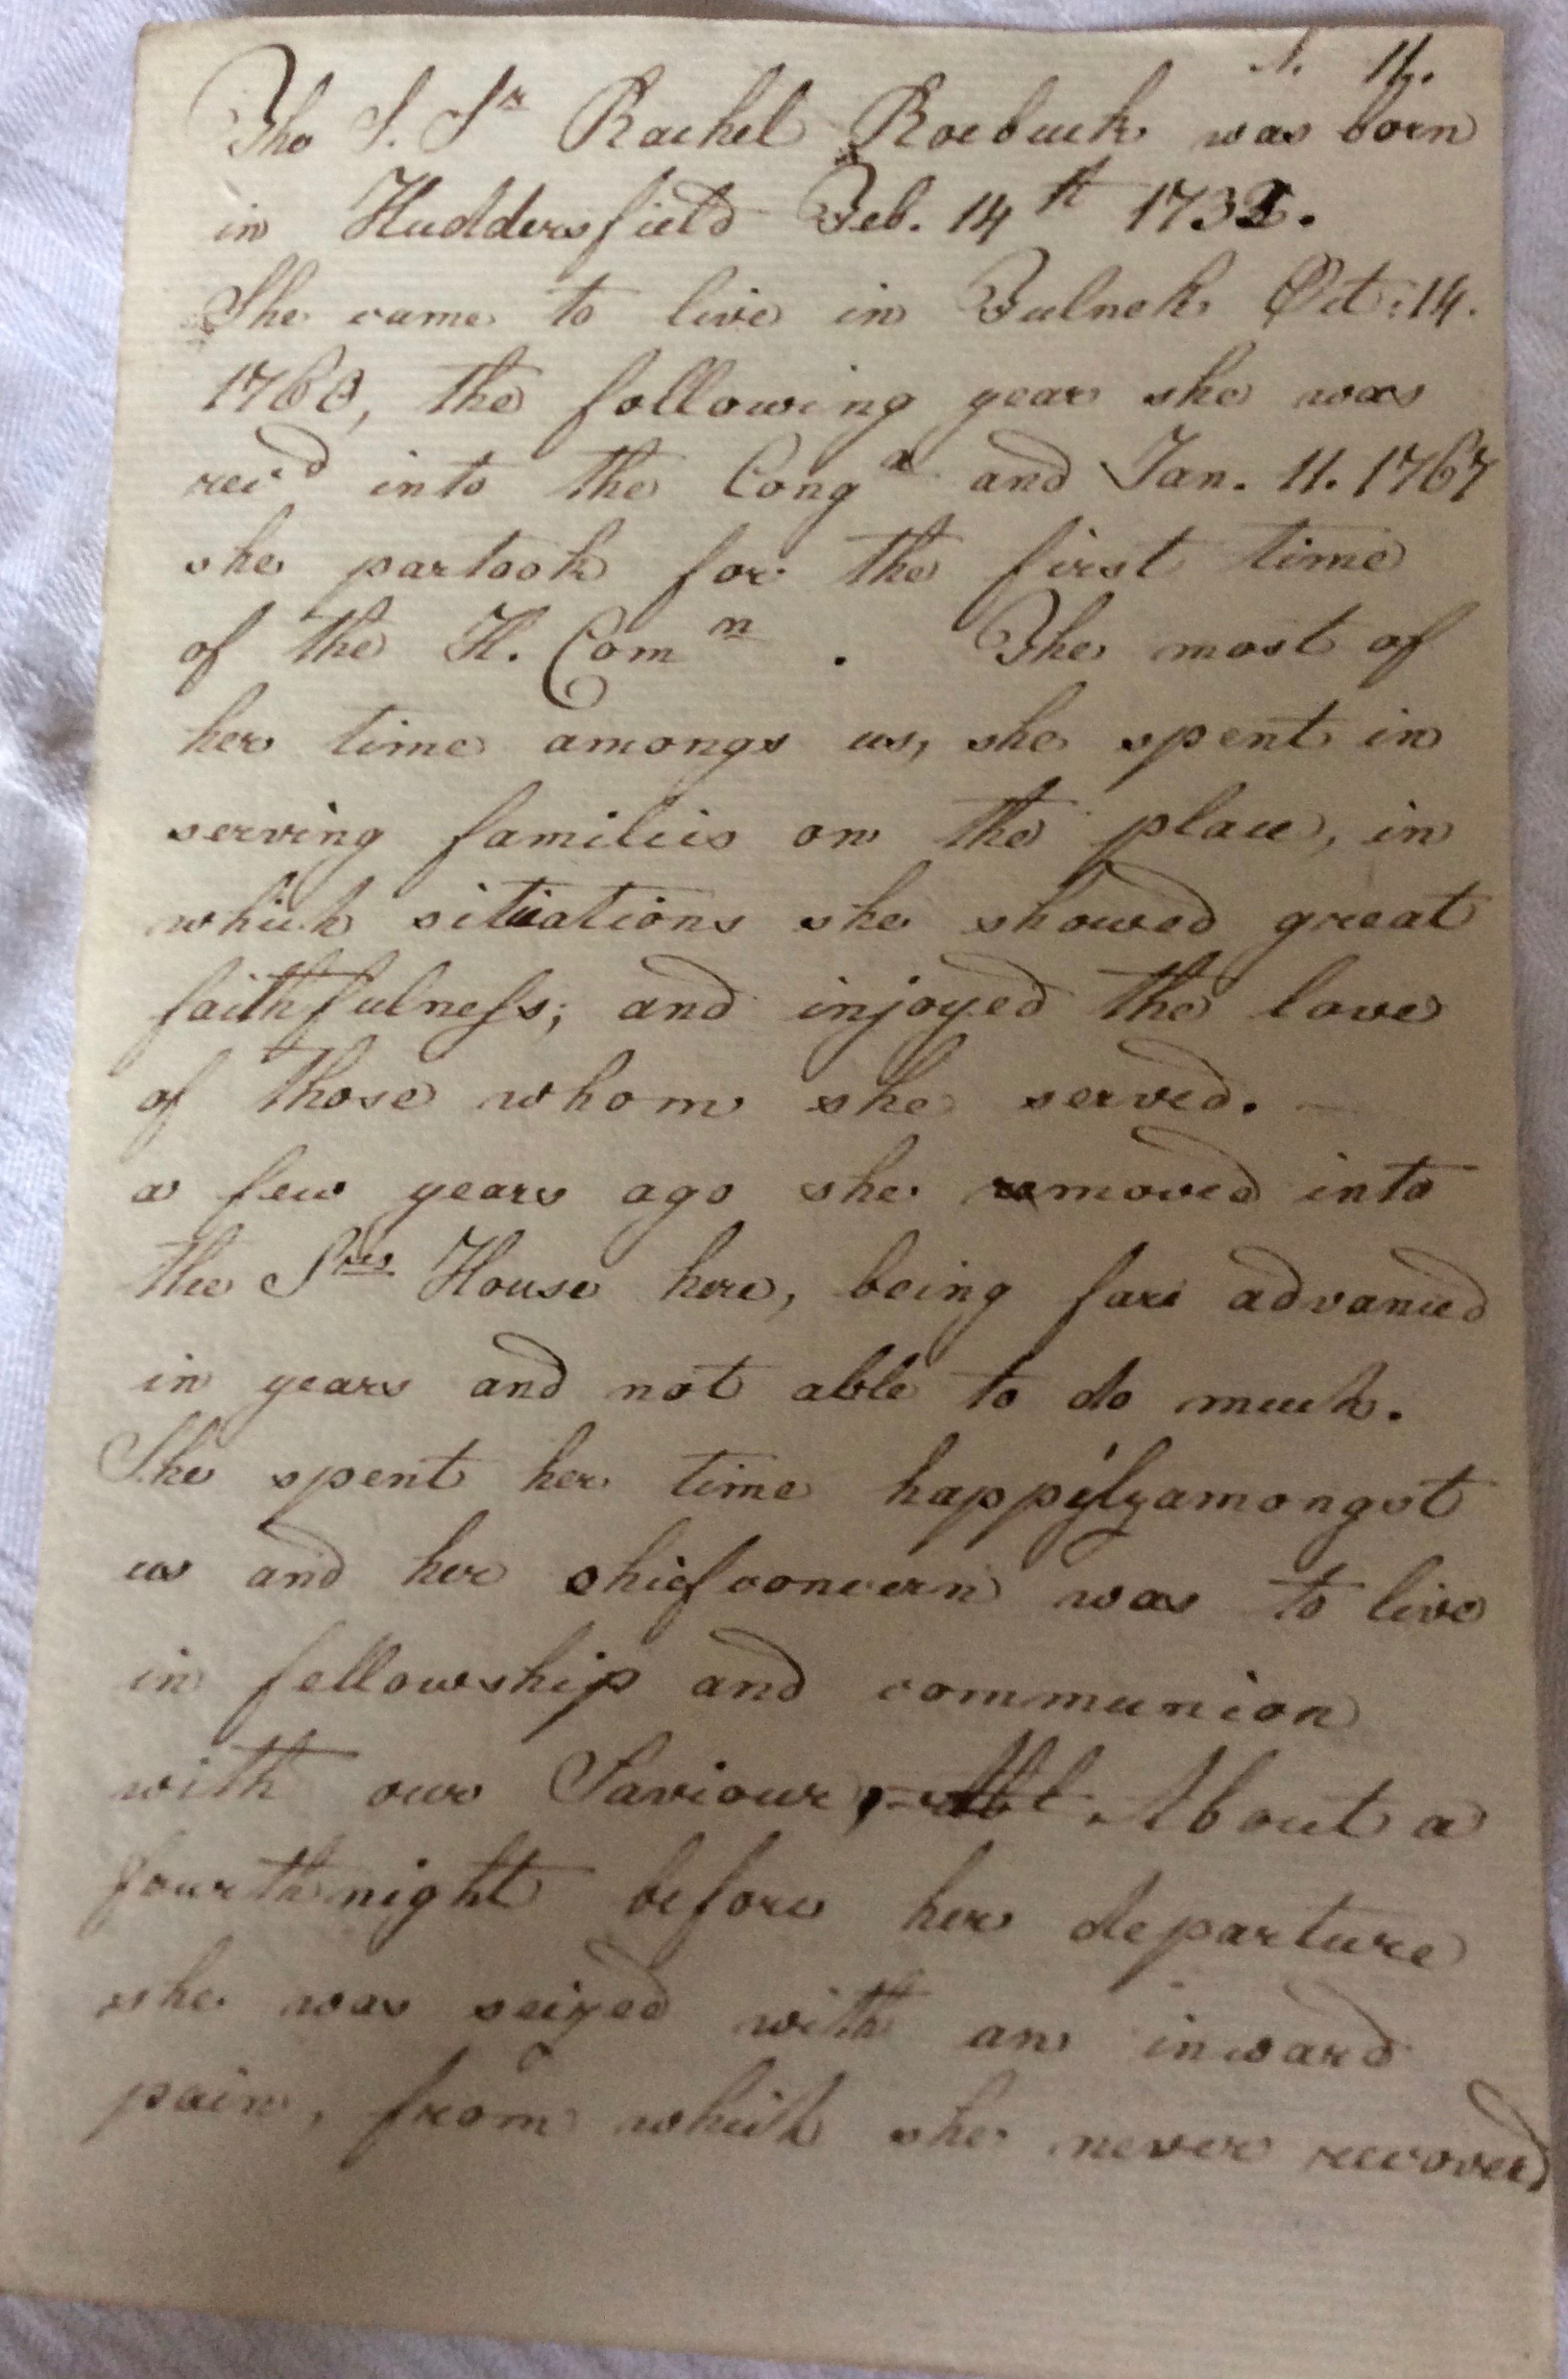 N. 11.
The S. Sr Rachel Roebuck was born
in Huddersfield Feb. 14th 1732.
She came to live in Fulnek Oct: 14.
1760, the following year she was
rec'd into the Conga and Jan. 11. 1767
she partook for the first time
of the H. Comn . The most of
her time amongs us, she spent in
serving families on the place, in
which situations she showed great
faithfulness; and injoyed the love
of those whom she served. –
a few years ago she removed into
the Srs House here, being fare advanced
in years and not able to do much.
She spent her time happily amongst
us and her chief concern was to live
in fellowship and communion
with our Saviour, About a
fourthnight before her departure
she was seized with an inward
pain, from which she never recoverd